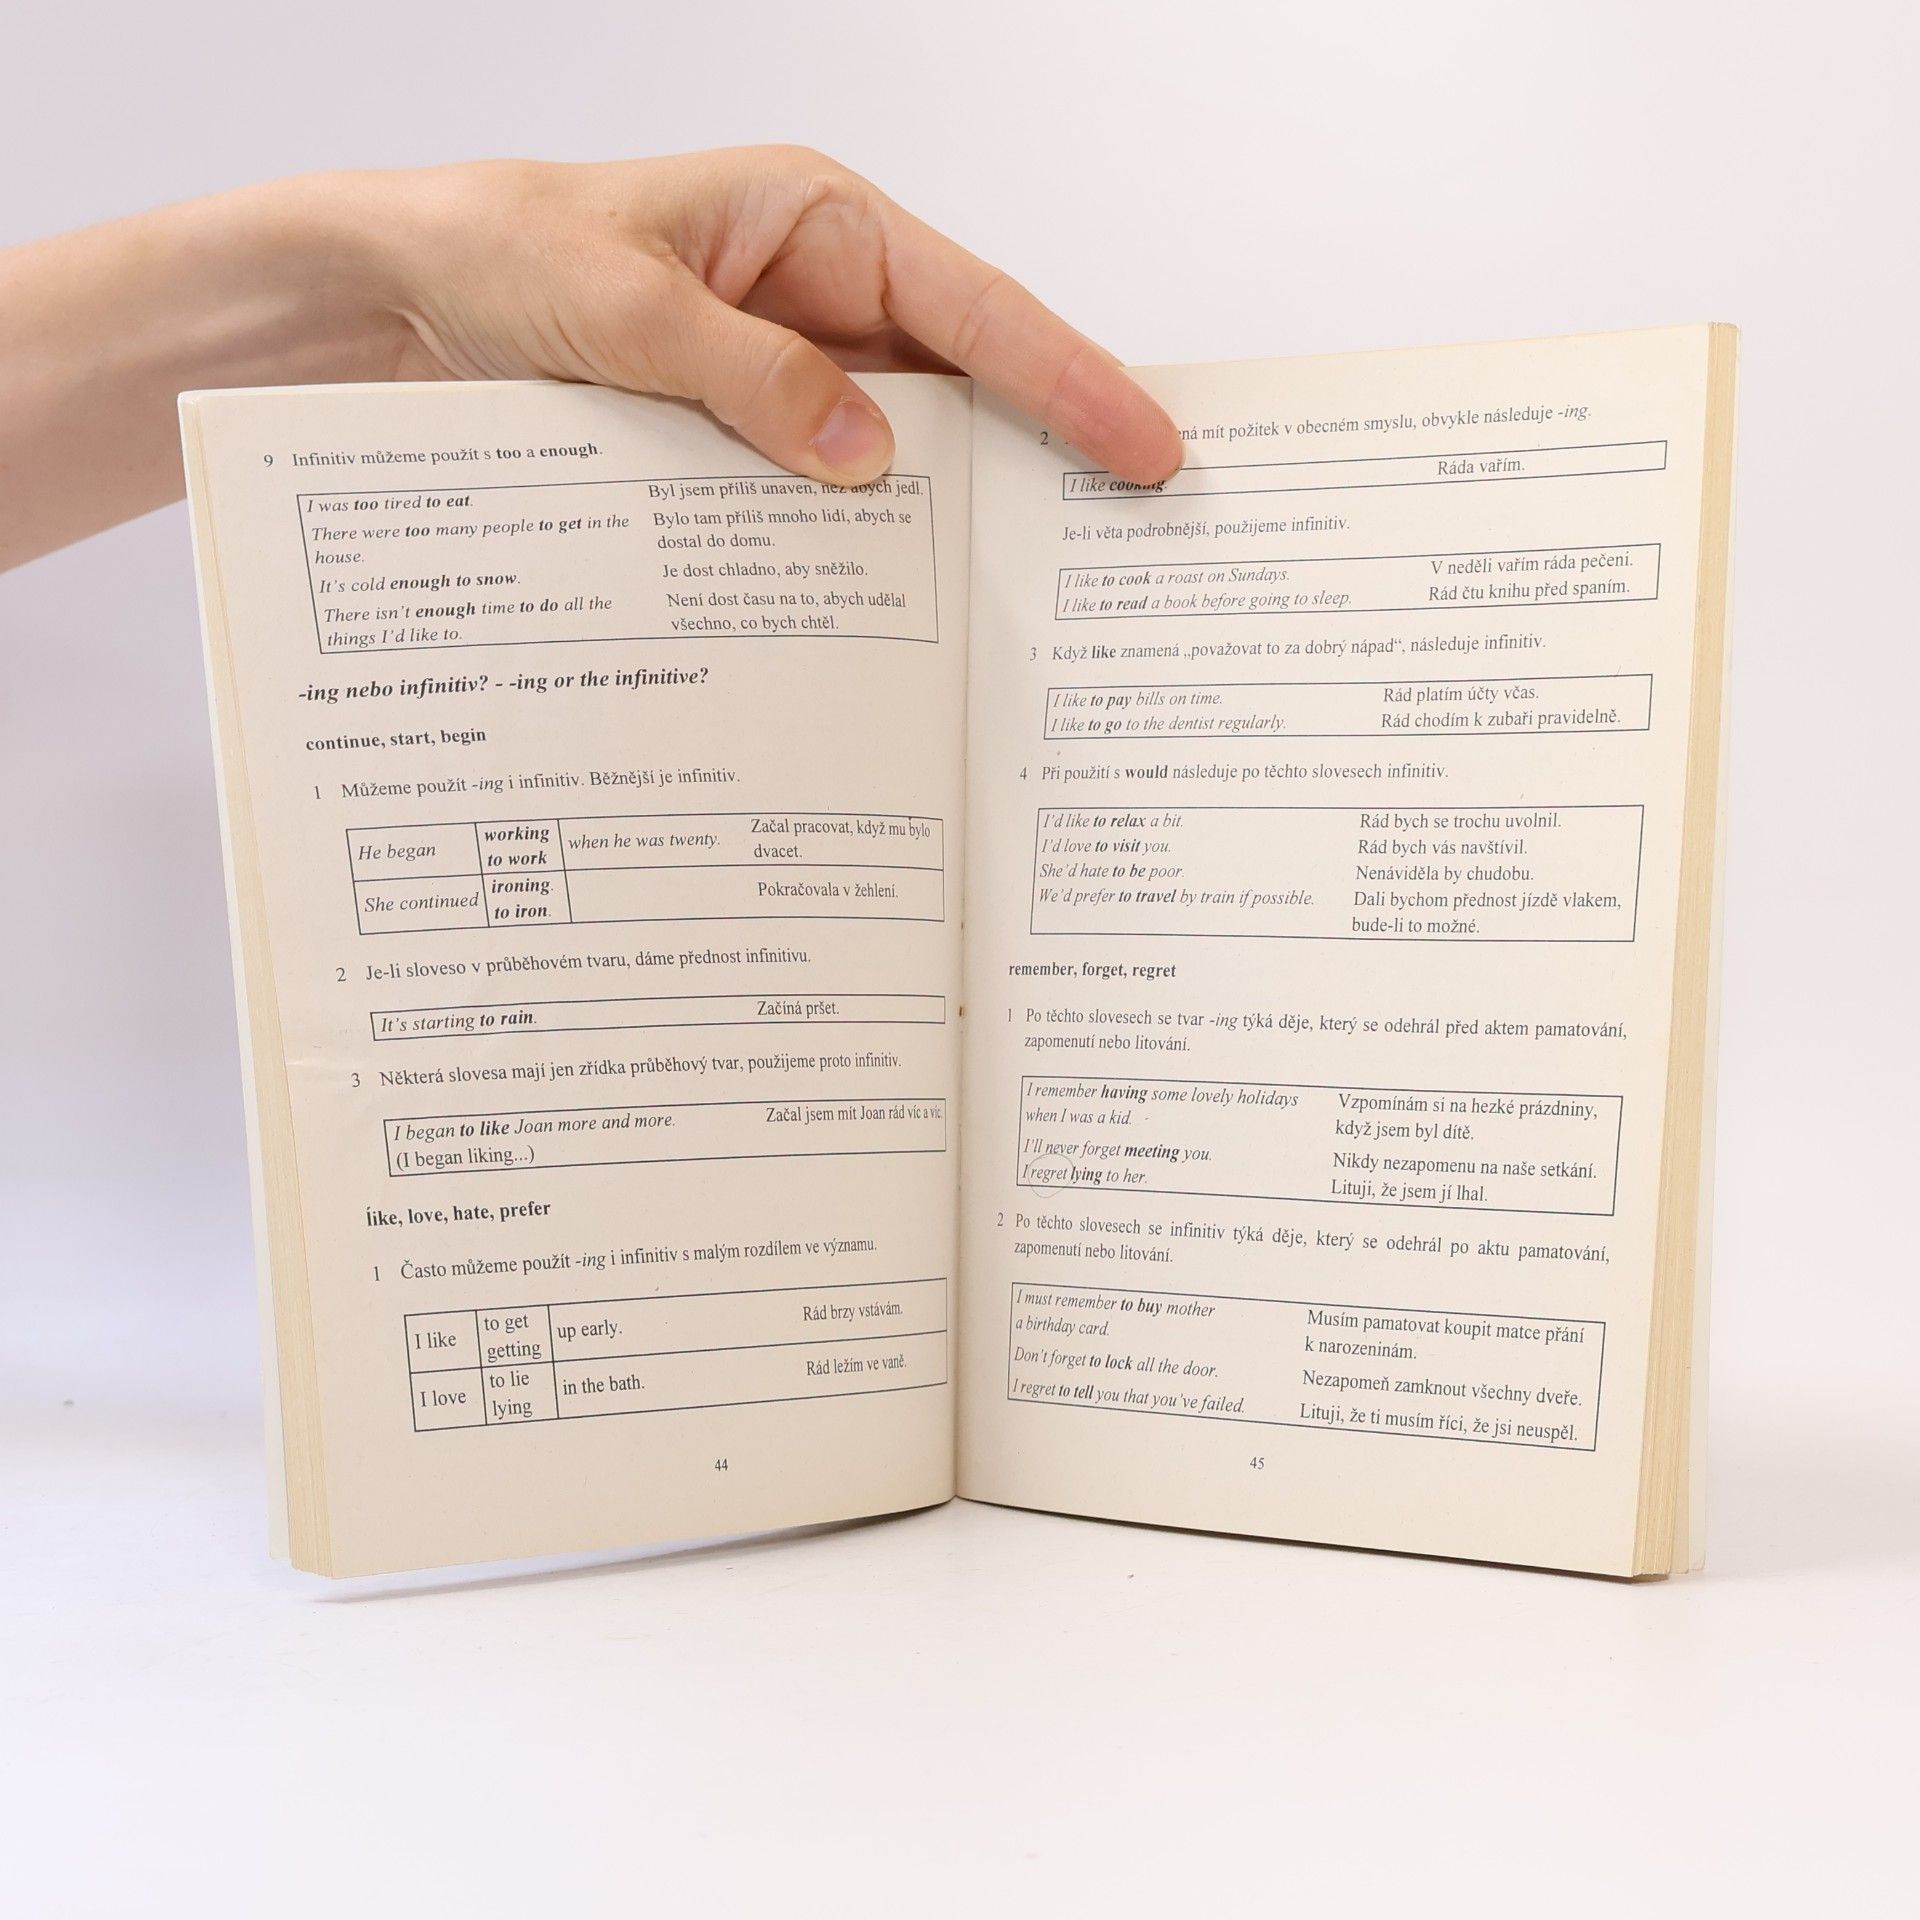 9 Infinitiv můžeme použít s too a enough.
I was too tired to eat. Byl jsem příliš unaven, než abych jedl.
There were too many people to get in the Bylo tam příliš mnoho lidí, abych se
house. dostal do domu.
It's cold enough to snow. Je dost chladno, aby sněžilo.
There isn't enough time to do all the Není dost času na to, abych udělal
things I'd like to. všechno, co bych chtěl.
-ing nebo infinitiv? - -ing or the infinitive?
continue, start, begin
1 Můžeme použít -ing i infinitiv. Běžnější je infinitiv.
He began working when he was twenty. Začal pracovat, když mu bylo
to work dvacet.
She continued ironing. Pokračovala v žehlení.
to iron.
2 Je-li sloveso v průběhovém tvaru, dáme přednost infinitivu.
It's starting to rain. Začíná pršet.
3 Některá slovesa mají jen zřídka průběhový tvar, použijeme proto infinitiv.
I began to like Joan more and more. Začal jsem mít Joan rád víc a víc.
(I began liking...)
like, love, hate, prefer
1 Často můžeme použít -ing i infinitiv s malým rozdílem ve významu.
I like to get up early. Rád brzy vstávám.
getting
I love to lie in the bath. Rád ležím ve vaně.
lying
44
2 mít požitek v obecném smyslu, obvykle následuje -ing.
I like cooking. Ráda vařím.
Je-li věta podrobnější, použijeme infinitiv.
I like to cook a roast on Sundays. V neděli vařím ráda pečeni.
I like to read a book before going to sleep. Rád čtu knihu před spaním.
3 Když like znamená „považovat to za dobrý nápad“, následuje infinitiv.
I like to pay bills on time. Rád platím účty včas.
I like to go to the dentist regularly. Rád chodím k zubaři pravidelně.
4 Při použití s would následuje po těchto slovesech infinitiv.
I'd like to relax a bit. Rád bych se trochu uvolnil.
I'd love to visit you. Rád bych vás navštívil.
She'd hate to be poor. Nenáviděla by chudobu.
We'd prefer to travel by train if possible. Dali bychom přednost jízdě vlakem,
bude-li to možné.
remember, forget, regret
1 Po těchto slovesech se tvar -ing týká děje, který se odehrál před aktem pamatování,
zapomenutí nebo litování.
I remember having some lovely holidays Vzpomínám si na hezké prázdniny,
when I was a kid. když jsem byl dítě.
I'll never forget meeting you. Nikdy nezapomenu na naše setkání.
I regret lying to her. Lituji, že jsem jí lhal.
2 Po těchto slovesech se infinitiv týká děje, který se odehrál po aktu pamatování,
zapomenutí nebo litování.
I must remember to buy mother Musím pamatovat koupit matce přání
a birthday card. k narozeninám.
Don't forget to lock all the door. Nezapomeň zamknout všechny dveře.
I regret to tell you that you've failed. Lituji, že ti musím říci, že jsi neuspěl.
45